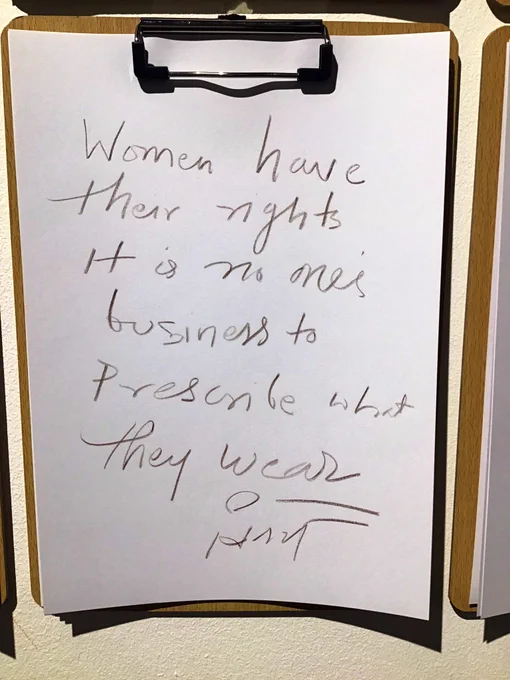 Women have
their rights
It is no one's
business to
Prescribe what
they wear